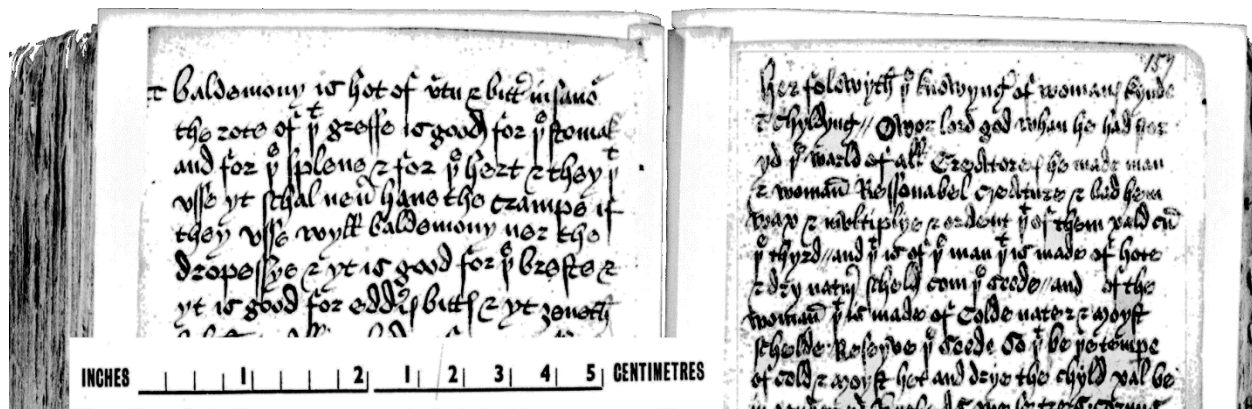 Baldemony is hot of v̓tu & bitt̓ in sauo̓
the rote of þᵗ gresse is good for þᵉ stomak
and for þᵉ splene & for þᵉ hert & they þᵗ
vsse yt schal neu̓ haue the crampe if
they vsse wyll baldemony nor the
dropessye & yt is good for þᵉ breste &
yt is good for edderis bitts & yt
INCHES 1 2 1 2 3 4 5 CENTIMETRES
159
Her folowyth þᵉ knowyng of womans kynde
& chyldyng // Owor lord god whan he had stor
yd þᵉ warld of all Creatores he made man
& woman Ressonabel creature & bad hem
wax & multiplye & ordent þᵗ of them xald cū
þᵉ thyrd // and þᵗ is of þᵉ man þᵗ is made of hote
& dry matir scheld com þᵉ seede // and of the
woman þᵗ is made of Colde mater & moyst
schelde Reseyve þᵉ seede So þᵗ be þᵉ tempe
of cold & moyst hot and drye the chyld xal be